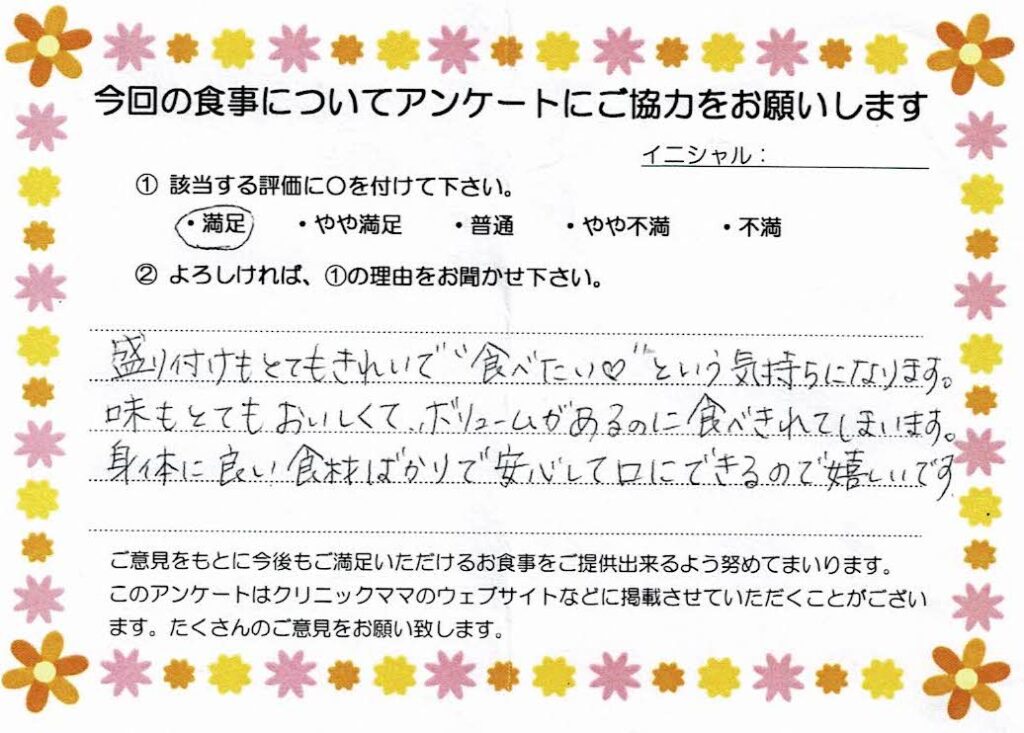 今回の食事についてアンケートにご協力をお願いします
イニシャル：
① 該当する評価に○を付けて下さい。
・満足 ・やや満足 ・普通 ・やや不満 ・不満
② よろしければ、①の理由をお聞かせ下さい。
盛り付けもとてもきれいで“食べたい♡”という気持ちになります。
味もとてもおいしくて、ボリュームがあるのに食べきれてしまいます。
身体に良い食材ばかりで安心して口にできるので嬉しいです
ご意見をもとに今後もご満足いただけるお食事をご提供出来るよう努めてまいります。
このアンケートはクリニックママのウェブサイトなどに掲載させていただくことがござい
ます。たくさんのご意見をお願い致します。